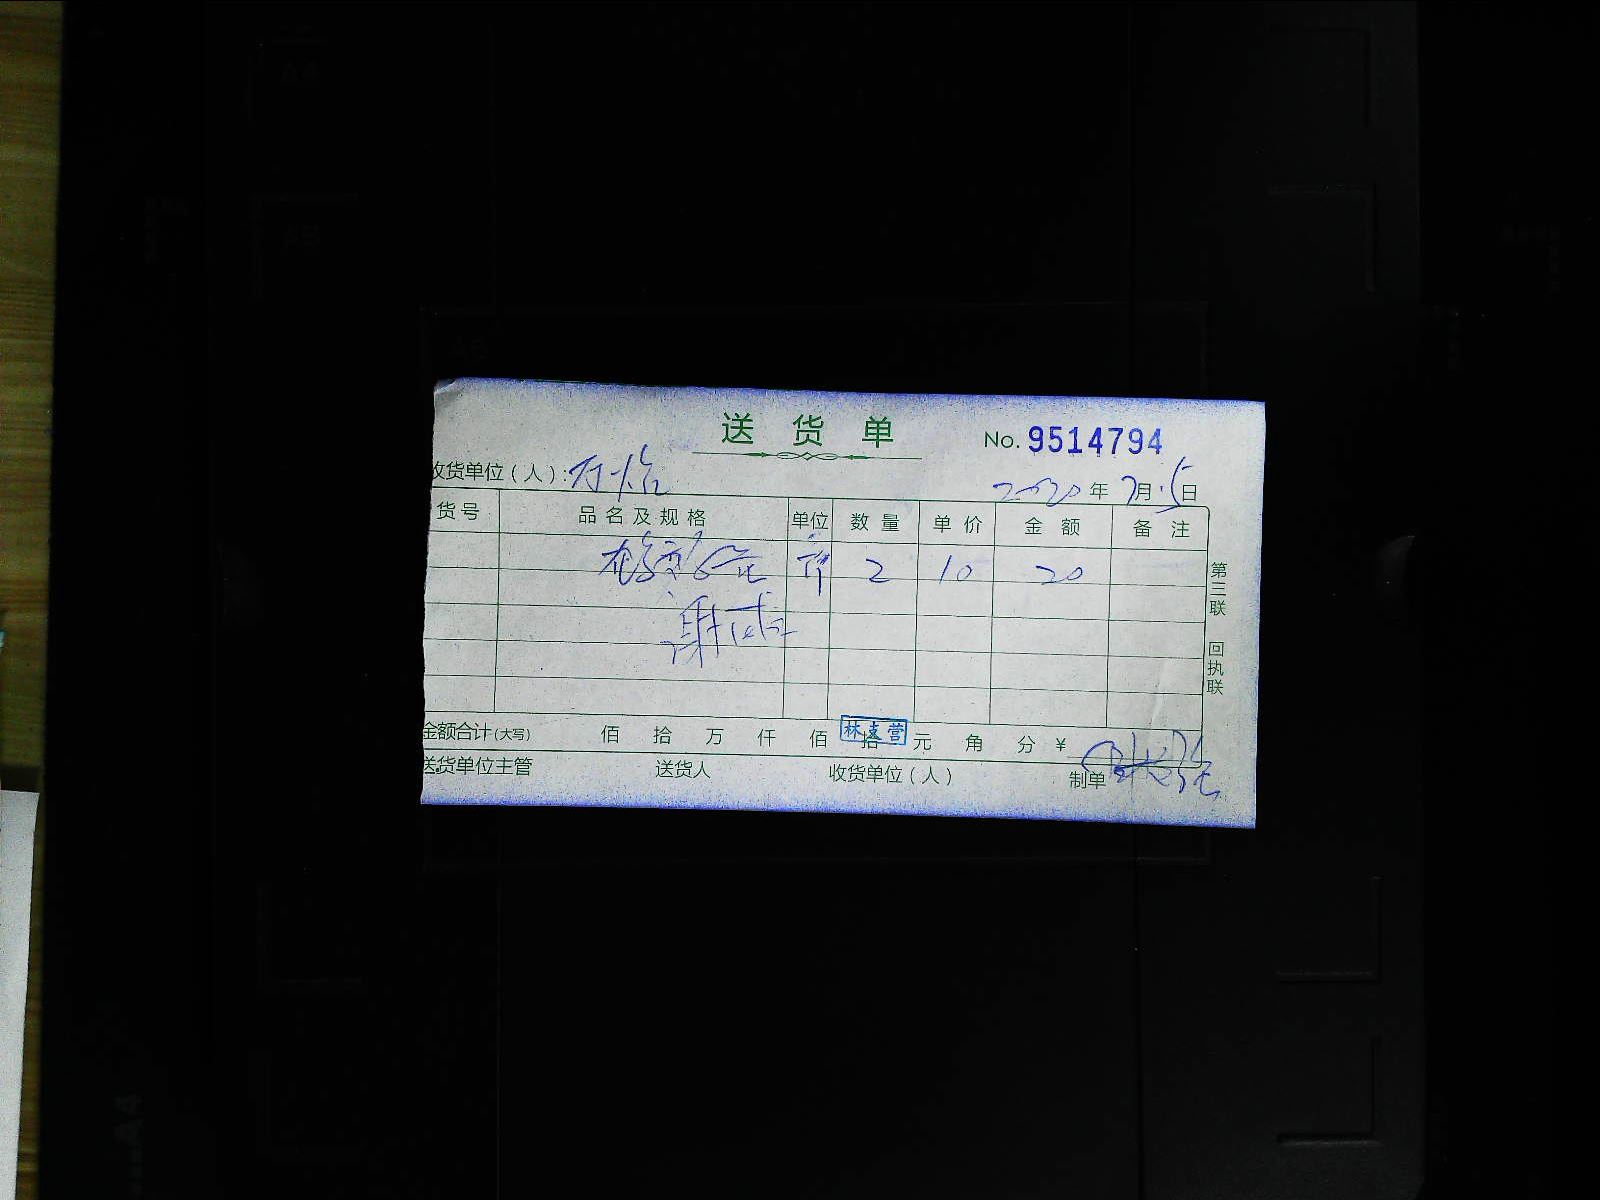 送货单
No. 9514794
收货单位(人):
2020年7月15日
货号 品名及规格 单位 数量 单价 金额 备注
2 10 20
第三联 回执联
金额合计(大写) 佰 拾 万 仟 佰 拾 元 角 分 ¥
林支营
送货单位主管 送货人 收货单位(人) 制单